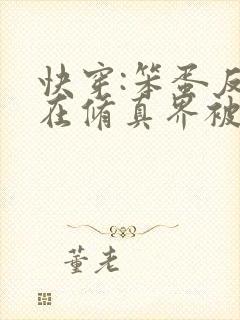 快穿:笨蛋反
在脩真界被
董老